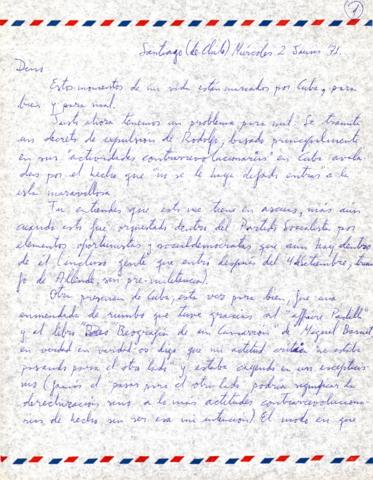 1
Santiago (de Chile) Miércoles 2 Junio 71.
Dens
Estos momentos de mi vida están marcados por Cuba, para
bien y para mal.
Justo ahora tenemos un problema para mal. Se tramita
un decreto de expulsión de Rodolfo, basado principalmente
en sus "actividades contrarrevolucionarias" en Cuba avala
das por el hecho que no se le haya dejado entrar a la
isla maravillosa.
Tu entiendes que esto me tiene en ascuas, más aun
cuando esto fue orquestado dentro del Partido Socialista por
elementos oportunistas y socialdemócratas que aun hay dentro
de él (incluso gente que entró después del 4 Setiembre, triun
fo de Allende, son pre-militancia).
Otra presencia de Cuba, esta vez para bien, fue una
enmendada de rumbo que tuve gracias al "affaire Padilla"
y al libro "Biografía de un Cimarrón" de Miguel Barnet
en verdad en verdad os digo que mi actitud crítica "no estaba
pasando para el otro lado" y estaba cayendo en un escepticis-
mo (jamás el pasar para el otro lado podría significar la
derechización sino a lo más actitudes contrarrevoluciona-
rias de hecho sin ser esa mi intención) El modo en que